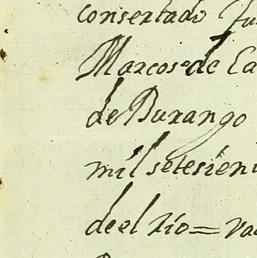 consertado fu
Marcos de Ca
de Durango
mil setesien
de el rio = va